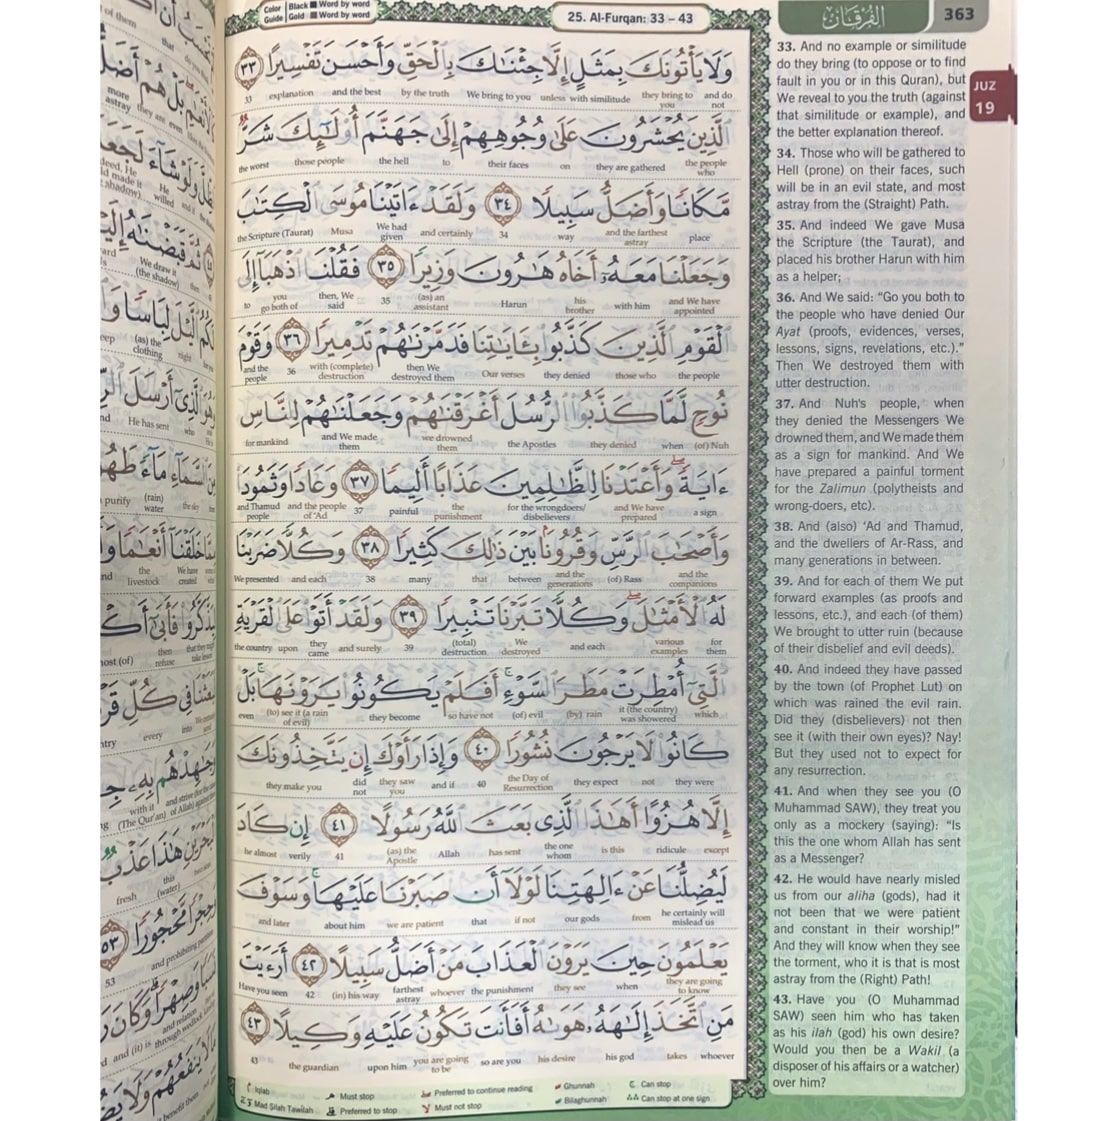 Color Guide
Black Word by word
Gold Word by word
25. Al-Furqan: 33 – 43
الفرقان
363
JUZ
19
وَلَا يَأْتُونَكَ بِمَثَلٍ إِلَّا جِئْنَٰكَ بِٱلْحَقِّ وَأَحْسَنَ تَفْسِيرًا ٣٣
and do not they bring to you with similitude unless We bring to you by the truth and the best explanation 33
ٱلَّذِينَ يُحْشَرُونَ عَلَىٰ وُجُوهِهِمْ إِلَىٰ جَهَنَّمَ أُو۟لَٰٓئِكَ شَرٌّ
the people who they are gathered on their faces to the hell those people the worst
مَّكَانًا وَأَضَلُّ سَبِيلًا ٣٤ وَلَقَدْ ءَاتَيْنَا مُوسَى ٱلْكِتَٰبَ
place and the farthest astray way 34 and certainly We had given Musa the Scripture (Taurat)
وَجَعَلْنَا مَعَهُۥٓ أَخَاهُ هَٰرُونَ وَزِيرًا ٣٥ فَقُلْنَا ٱذْهَبَآ إِلَى
and We have appointed with him his brother Harun (as) an assistant 35 then, We said you go both of to
ٱلْقَوْمِ ٱلَّذِينَ كَذَّبُوا۟ بِـَٔايَٰتِنَا فَدَمَّرْنَٰهُمْ تَدْمِيرًا ٣٦ وَقَوْمَ
the people those who they denied Our verses then We destroyed them with (complete) destruction 36 and the people
نُوحٍ لَّمَّا كَذَّبُوا۟ ٱلرُّسُلَ أَغْرَقْنَٰهُمْ وَجَعَلْنَٰهُمْ لِلنَّاسِ
(of) Nuh when they denied the Apostles we drowned them and We made them for mankind
ءَايَةً وَأَعْتَدْنَا لِلظَّٰلِمِينَ عَذَابًا أَلِيمًا ٣٧ وَعَادًا وَثَمُودَا۟
a sign and We have prepared for the wrongdoers/ disbelievers the punishment painful 37 and the people of 'Ad and Thamud people
وَأَصْحَٰبَ ٱلرَّسِّ وَقُرُونًۢا بَيْنَ ذَٰلِكَ كَثِيرًا ٣٨ وَكُلًّا ضَرَبْنَا
and the companions (of) Rass and the generations between that many 38 and each We presented
لَهُ ٱلْأَمْثَٰلَ وَكُلًّا تَبَّرْنَا تَتْبِيرًا ٣٩ وَلَقَدْ أَتَوْا۟ عَلَى ٱلْقَرْيَةِ
for them various examples and each We destroyed (total) destruction 39 and surely they came upon the country
ٱلَّتِىٓ أُمْطِرَتْ مَطَرَ ٱلسَّوْءِ أَفَلَمْ يَكُونُوا۟ يَرَوْنَهَا بَلْ
which it (the country) was showered (by) rain (of) evil so have not they become (to) see it (a rain of evil) even
كَانُوا۟ لَا يَرْجُونَ نُشُورًا ٤٠ وَإِذَا رَأَوْكَ إِن يَتَّخِذُونَكَ
they were not they expect the Day of Resurrection 40 and if they saw you did not they make you
إِلَّا هُزُوًا أَهَٰذَا ٱلَّذِى بَعَثَ ٱللَّهُ رَسُولًا ٤١ إِن كَادَ
except ridicule is this the one whom has sent Allah (as) the Apostle 41 verily he almost
لَيُضِلُّنَا عَنْ ءَالِهَتِنَا لَوْلَآ أَن صَبَرْنَا عَلَيْهَا وَسَوْفَ
he certainly will mislead us from our gods if not that we are patient about him and later
يَعْلَمُونَ حِينَ يَرَوْنَ ٱلْعَذَابَ مَنْ أَضَلُّ سَبِيلًا ٤٢ أَرَءَيْتَ
they are going to know when they see the punishment whoever farthest astray (in) his way 42 Have you seen
مَنِ ٱتَّخَذَ إِلَٰهَهُۥ هَوَىٰهُ أَفَأَنتَ تَكُونُ عَلَيْهِ وَكِيلًا ٤٣
whoever takes his god his desire so are you you are going to be upon him the guardian 43
Iqlab
Must stop
Preferred to continue reading
Ghunnah
Can stop
Mad Silah Tawilah
Preferred to stop
Must not stop
Bilaghunnah
Can stop at one sign
33. And no example or similitude
do they bring (to oppose or to find
fault in you or in this Quran), but
We reveal to you the truth (against
that similitude or example), and
the better explanation thereof.
34. Those who will be gathered to
Hell (prone) on their faces, such
will be in an evil state, and most
astray from the (Straight) Path.
35. And indeed We gave Musa
the Scripture (the Taurat), and
placed his brother Harun with him
as a helper;
36. And We said: “Go you both to
the people who have denied Our
Ayat (proofs, evidences, verses,
lessons, signs, revelations, etc.).”
Then We destroyed them with
utter destruction.
37. And Nuh's people, when
they denied the Messengers We
drowned them, and We made them
as a sign for mankind. And We
have prepared a painful torment
for the Zalimun (polytheists and
wrong-doers, etc).
38. And (also) ‘Ad and Thamud,
and the dwellers of Ar-Rass, and
many generations in between.
39. And for each of them We put
forward examples (as proofs and
lessons, etc.), and each (of them)
We brought to utter ruin (because
of their disbelief and evil deeds).
40. And indeed they have passed
by the town (of Prophet Lut) on
which was rained the evil rain.
Did they (disbelievers) not then
see it (with their own eyes)? Nay!
But they used not to expect for
any resurrection.
41. And when they see you (O
Muhammad SAW), they treat you
only as a mockery (saying): “Is
this the one whom Allah has sent
as a Messenger?
42. He would have nearly misled
us from our aliha (gods), had it
not been that we were patient
and constant in their worship!”
And they will know when they see
the torment, who it is that is most
astray from the (Right) Path!
43. Have you (O Muhammad
SAW) seen him who has taken
as his ilah (god) his own desire?
Would you then be a Wakil (a
disposer of his affairs or a watcher)
over him?